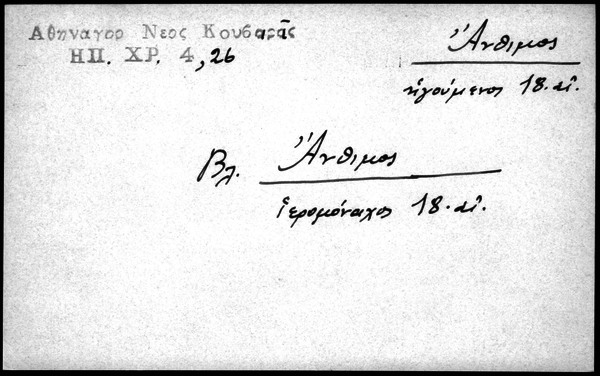 Αθηναγορ Νεος Κουβαρᾶς
ΗΠ. ΧΡ. 4,26
Ἄνθιμος
ἡγούμενος 18.αἰ.
Βλ. Ἄνθιμος
ἱερομόναχος 18.αἰ.